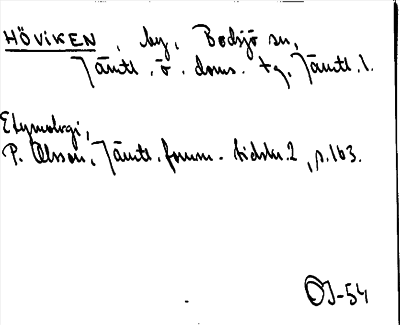 HÖVIKEN, by, Bodsjö sn,
Jämtl. ö. doms. tg, Jämtl. l.
Etymologi,
P. Olsson, Jämtl. fornm. tidskr. 2, s. 163.
OJ-54